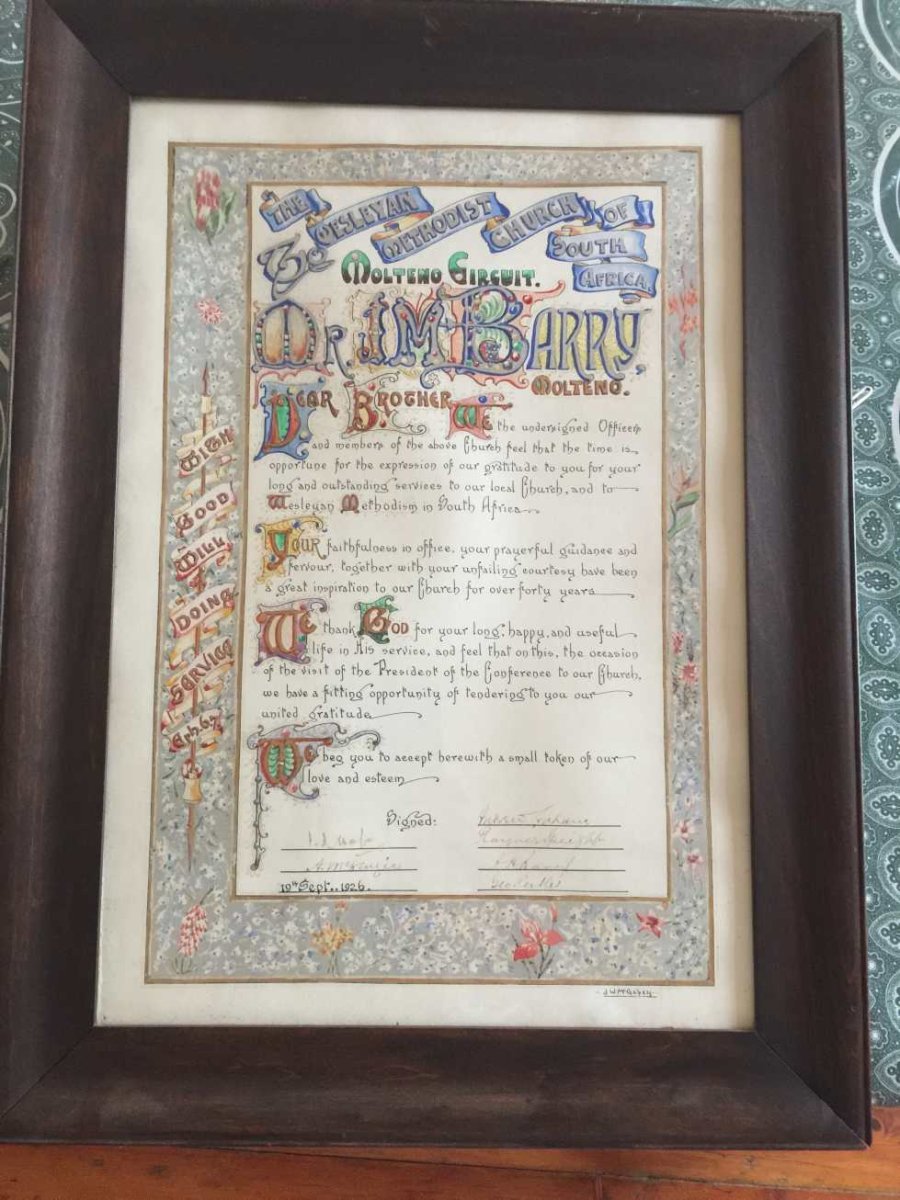 THE WESLEYAN METHODIST CHURCH OF SOUTH AFRICA.
To
MOLTENO CIRCUIT.
Mr J M BARRY,
MOLTENO.
DEAR BROTHER
We the undersigned Officers
and members of the above Church feel that the time is
opportune for the expression of our gratitude to you for your
long and outstanding services to our local Church, and to
Wesleyan Methodism in South Africa
YOUR faithfulness in office, your prayerful guidance and
fervour, together with your unfailing courtesy have been
a great inspiration to our Church for over forty years
We thank GOD for your long, happy, and useful
life in His service, and feel that on this, the occasion
of the visit of the President of the Conference to our Church,
we have a fitting opportunity of tendering to you our
united gratitude
We beg you to accept herewith a small token of our
love and esteem
Signed:
19th Sept., 1926.
WITH
GOOD
WILL
DOING
SERVICE
Eph 6.7